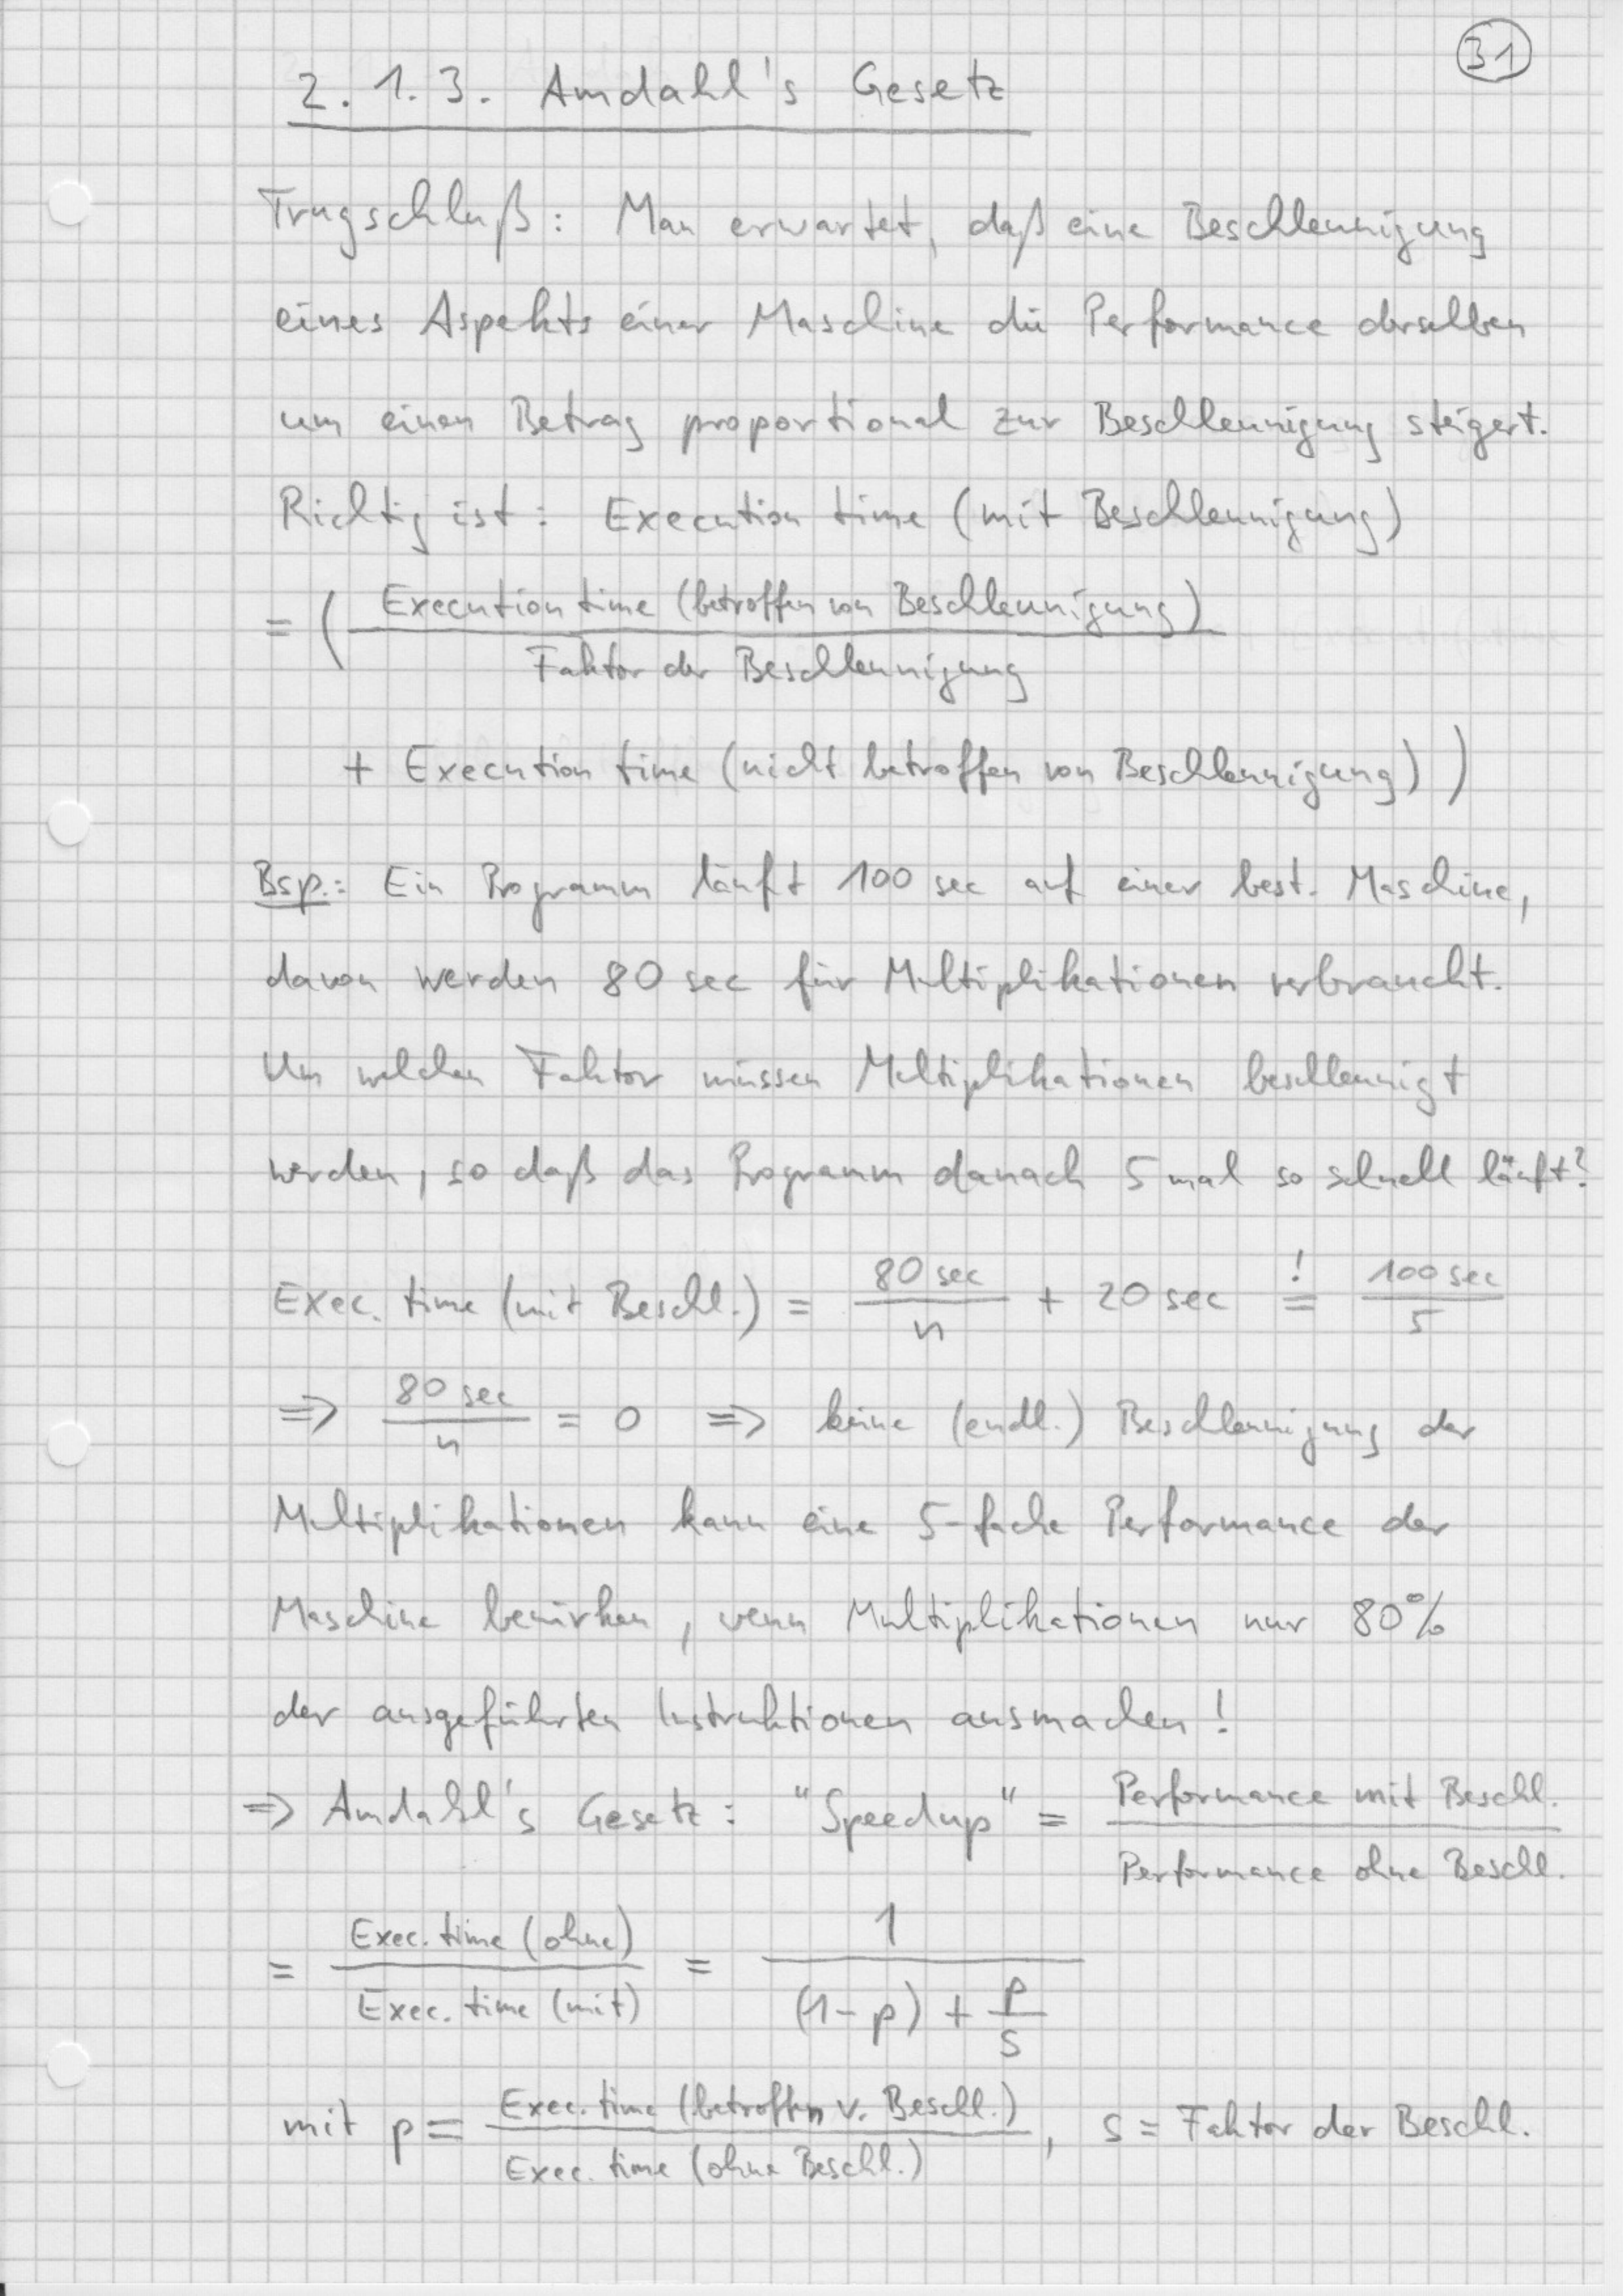 31
2.1.3. Amdahl's Gesetz
Trugschluß: Man erwartet, daß eine Beschleunigung
eines Aspekts einer Maschine die Performance derselben
um einen Betrag proportional zur Beschleunigung steigert.
Richtig ist: Execution time (mit Beschleunigung)
= ( Execution time (betroffen von Beschleunigung)
Faktor der Beschleunigung
+ Execution time (nicht betroffen von Beschleunigung) )
Bsp.: Ein Programm läuft 100 sec auf einer best. Maschine,
davon werden 80 sec für Multiplikationen verbraucht.
Um welchen Faktor müssen Multiplikationen beschleunigt
werden, so daß das Programm danach 5 mal so schnell läuft?
Exec. time (mit Beschl.) = 80 sec / n + 20 sec =! 100 sec / 5
=> 80 sec / n = 0 => keine (endl.) Beschleunigung der
Multiplikationen kann eine 5-fache Performance der
Maschine bewirken, wenn Multiplikationen nur 80%
der ausgeführten Instruktionen ausmachen!
=> Amdahl's Gesetz: "Speedup" = Performance mit Beschl. / Performance ohne Beschl.
= Exec. time (ohne) / Exec. time (mit) = 1 / ((1-p) + p/s)
mit p = Exec. time (betroffen v. Beschl.) / Exec. time (ohne Beschl.), s = Faktor der Beschl.